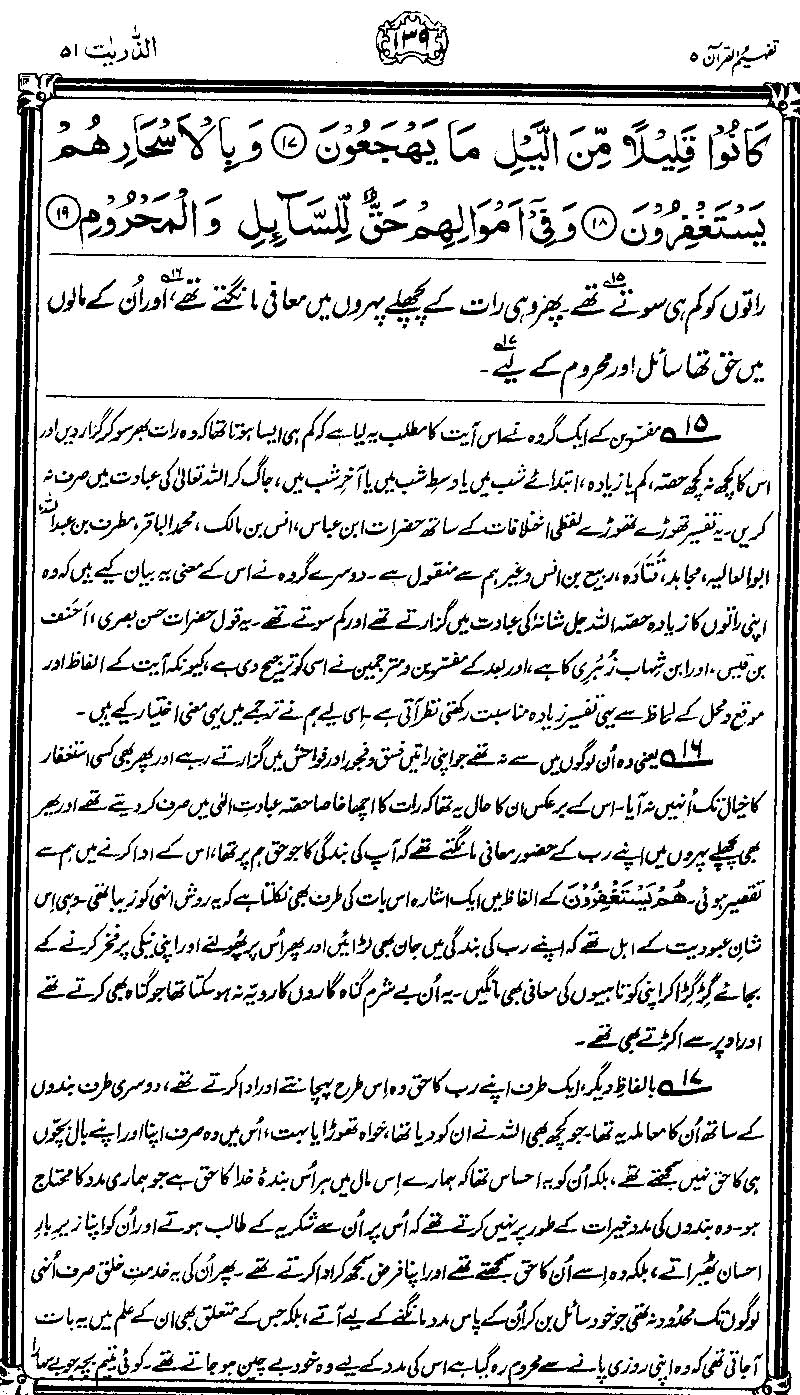 تفہیم القرآن ۵
۱۳۹
الذّٰریٰت ۵۱
كَانُوْا قَلِيْلًا مِّنَ الَّيْلِ مَا يَهْجَعُوْنَ ۝۱۷ وَبِالْاَسْحَارِ هُمْ
يَسْتَغْفِرُوْنَ ۝۱۸ وَفِيْٓ اَمْوَالِهِمْ حَقٌّ لِّلسَّآئِلِ وَالْمَحْرُوْمِ ۝۱۹
راتوں کو کم ہی سوتے تھے۱۵۔ پھر وہی رات کے پچھلے پہروں میں معافی مانگتے تھے۱۶، اور اُن کے مالوں
میں حق تھا سائل اور محروم کے لیے۱۷۔
۱۵ مفسّرین کے ایک گروہ نے اس آیت کا مطلب یہ لیا ہے کہ کم ہی ایسا ہوتا تھا کہ وہ رات بھر سو کر گزار دیں اور
اس کا کچھ نہ کچھ حصہ، کم یا زیادہ، ابتدائے شب میں یا وسطِ شب میں یا آخرِ شب میں، جاگ کر اللہ تعالیٰ کی عبادت میں صرف نہ
کریں۔ یہ تفسیر تھوڑے تھوڑے لفظی اختلافات کے ساتھ حضرات ابن عباس، انس بن مالک، محمد الباقر، مطرف بن عبداللہ،
ابوالعالیہ، مجاہد، قَتَادَہ، ربیع بن انس وغیرہم سے منقول ہے۔ دوسرے گروہ نے اس کے معنی یہ بیان کیے ہیں کہ وہ
اپنی راتوں کا زیادہ حصّہ اللہ جل شانہٗ کی عبادت میں گزارتے تھے اور کم سوتے تھے۔ یہ قول حضرات حسن بصری، اَحنَف
بن قیس، اور ابن شہاب زُہری کا ہے، اور بعد کے مفسّرین و مترجمین نے اسی کو ترجیح دی ہے، کیونکہ آیت کے الفاظ اور
موقع و محل کے لحاظ سے یہی تفسیر زیادہ مناسبت رکھتی نظر آتی ہے۔ اِسی لیے ہم نے ترجمے میں یہی معنی اختیار کیے ہیں۔
۱۶ یعنی وہ اُن لوگوں میں سے نہ تھے جو اپنی راتیں فسق و فجور اور فواحش میں گزارتے رہے اور پھر بھی کسی استغفار
کا خیال تک اُنہیں نہ آیا۔ اس کے برعکس ان کا حال یہ تھا کہ رات کا اچھا خاصا حصّہ عبادتِ الٰہی میں صرف کر دیتے تھے اور پھر
بھی پچھلے پہروں میں اپنے رب کے حضور معافی مانگتے تھے کہ آپ کی بندگی کا جو حق ہم پر تھا، اس کے ادا کرنے میں ہم سے
تقصیر ہوئی۔ هُمْ يَسْتَغْفِرُوْنَ کے الفاظ میں ایک اشارہ اس بات کی طرف بھی نکلتا ہے کہ یہ روش انہی کو زیبا تھی۔ وہی اِس
شانِ عبودیت کے اہل تھے کہ اپنے رب کی بندگی میں جان بھی لڑائیں اور پھر اُس پر پھُولنے اور اپنی نیکی پر فخر کرنے کے
بجائے گِڑگِڑا کر اپنی کوتاہیوں کی معافی بھی مانگیں۔ یہ اُن بے شرم گناہ گاروں کا رویّہ نہ ہو سکتا تھا جو گناہ بھی کرتے تھے
اور اوپر سے اکڑتے بھی تھے۔
۱۷ بالفاظِ دیگر، ایک طرف اپنے رب کا حق وہ اِس طرح پہچانتے اور ادا کرتے تھے، دوسری طرف بندوں
کے ساتھ اُن کا معاملہ یہ تھا۔ جو کچھ بھی اللہ نے ان کو دیا تھا، خواہ تھوڑا یا بہت، اُس میں وہ صرف اپنا اور اپنے بال بچّوں
ہی کا حق نہیں سمجھتے تھے، بلکہ اُن کو یہ احساس تھا کہ ہمارے اِس مال میں ہر اُس بندۂ خدا کا حق ہے جو ہماری مدد کا محتاج
ہو۔ وہ بندوں کی مدد خیرات کے طور پر نہیں کرتے تھے کہ اُس پر اُن سے شکریہ کے طالب ہوتے اور اُن کو اپنا زیرِ بارِ
احسان ٹھیراتے، بلکہ وہ اِسے اُن کا حق سمجھتے تھے اور اپنا فرض سمجھ کر ادا کرتے تھے۔ پھر اُن کی یہ خدمتِ خلق صرف اُنہی
لوگوں تک محدود نہ تھی جو خود سائل بن کر اُن کے پاس مدد مانگنے کے لیے آتے، بلکہ جس کے متعلق بھی ان کے علم میں یہ بات
آ جاتی تھی کہ وہ اپنی روزی پانے سے محروم رہ گیا ہے اس کی مدد کے لیے وہ خود بے چین ہو جاتے تھے۔ کوئی یتیم بچہ جو بے سہارا